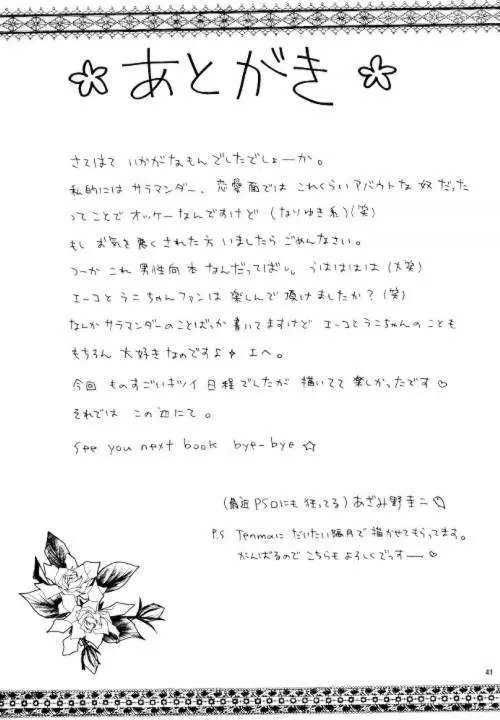 あとがき
さてはて いかがなもんでしたでしょーか。
私的には サラマンダー、恋愛面では これくらい アバウトな 奴だった
ってことで オッケーなんですけど (なりゆき系)(笑)
もし お気を悪くされた方 いましたら ごめんなさい。
つーか これ 男性向本 なんだってばい。 うはははは (大笑)
エーコとラニちゃんファンは 楽しんで頂けましたか?(笑)
なんか サラマンダーのことばっか 書いてますけど エーコとラニちゃんのことも
もちろん 大好きなのですよ エへ。
今回 ものすごいキツイ 日程でしたが 描いてて 楽しかったです♡
それでは この辺にて。
See you next book bye-bye ☆
(最近 PSOにも 狂ってる) あざみ野圭二
P.S Tenmaに だいたい隔月で 描かせてもらってます。
がんばるので こちらも よろしくでっすー♡
41